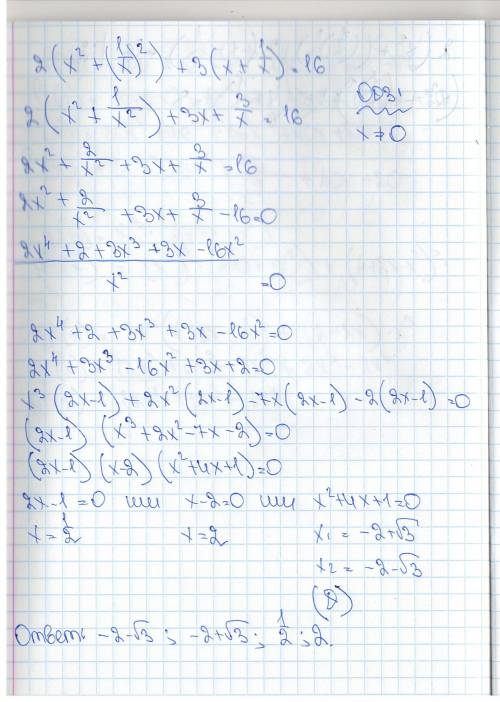 2(x² + (1/x)²) + 3(x + 1/x) = 16
2(x² + 1/x²) + 3x + 3/x = 16
ОДЗ:
x ≠ 0
2x² + 2/x² + 3x + 3/x = 16
2x² + 2/x² + 3x + 3/x - 16 = 0
(2x⁴ + 2 + 3x³ + 3x - 16x²)/x² = 0
2x⁴ + 2 + 3x³ + 3x - 16x² = 0
2x⁴ + 3x³ - 16x² + 3x + 2 = 0
x³(2x-1) + 2x²(2x-1) - 7x(2x-1) - 2(2x-1) = 0
(2x-1) (x³ + 2x² - 7x - 2) = 0
(2x-1) (x-2) (x² + 4x + 1) = 0
2x-1 = 0 или x-2 = 0 или x² + 4x + 1 = 0
x = 1/2 x = 2 x₁ = -2+√3
x₂ = -2-√3
Ответ: -2-√3; -2+√3; 1/2; 2.